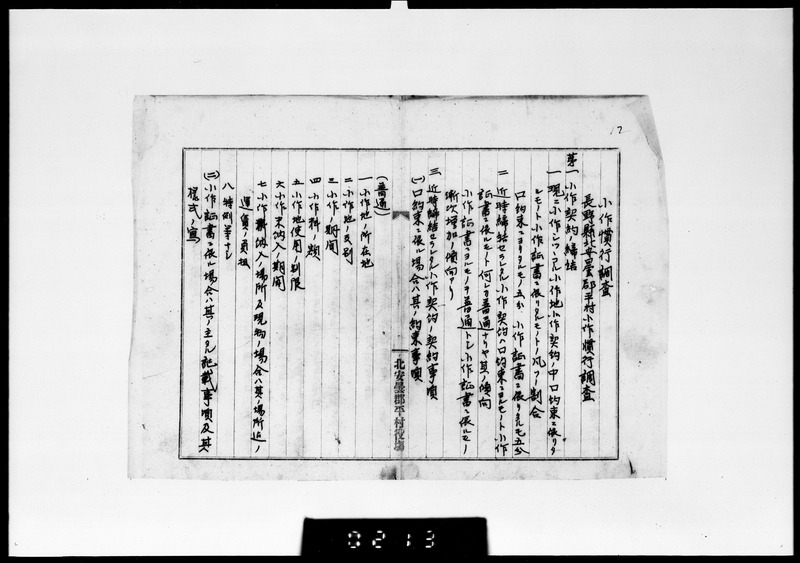 17
小作慣行調査
長野縣北安曇郡平村小作慣行調査
第一 小作契約締結
一 現ニ小作シツヽアル小作地小作契約ノ中口約束ニ依リタ
ルモノト小作証書ニ依リタルモノトノ凡ソノ割合
口約束ニヨリタルモノ五分 小作証書ニ依リタルモノ五分
二 近時締結セラレタル小作契約ハ口約束ニヨルモノト小作
証書ニ依ルモノト何レカ普通ナリヤ其ノ傾向
小作証書ニヨルモノヲ普通トシ小作証書ニ依ルモノ
漸次増加ノ傾向アリ
三 近時締結セラレタル小作契約ノ契約事項
(一)口約束ニ依ル場合ハ其ノ約束事項
北安曇郡平村役場
(普通)
一 小作地ノ所在地
二 小作地ノ反別
三 小作ノ期間
四 小作料ノ額
五 小作地使用ノ制限
六 小作米納入ノ期間
七 小作料納入ノ場所及現物ノ場合ハ其ノ場所迄ノ
運賃ノ負担
八 特別ノ筆ナシ
(二)小作証書ニ依ル場合ハ其ノ主タル記載事項及其
様式ノ寫
0213